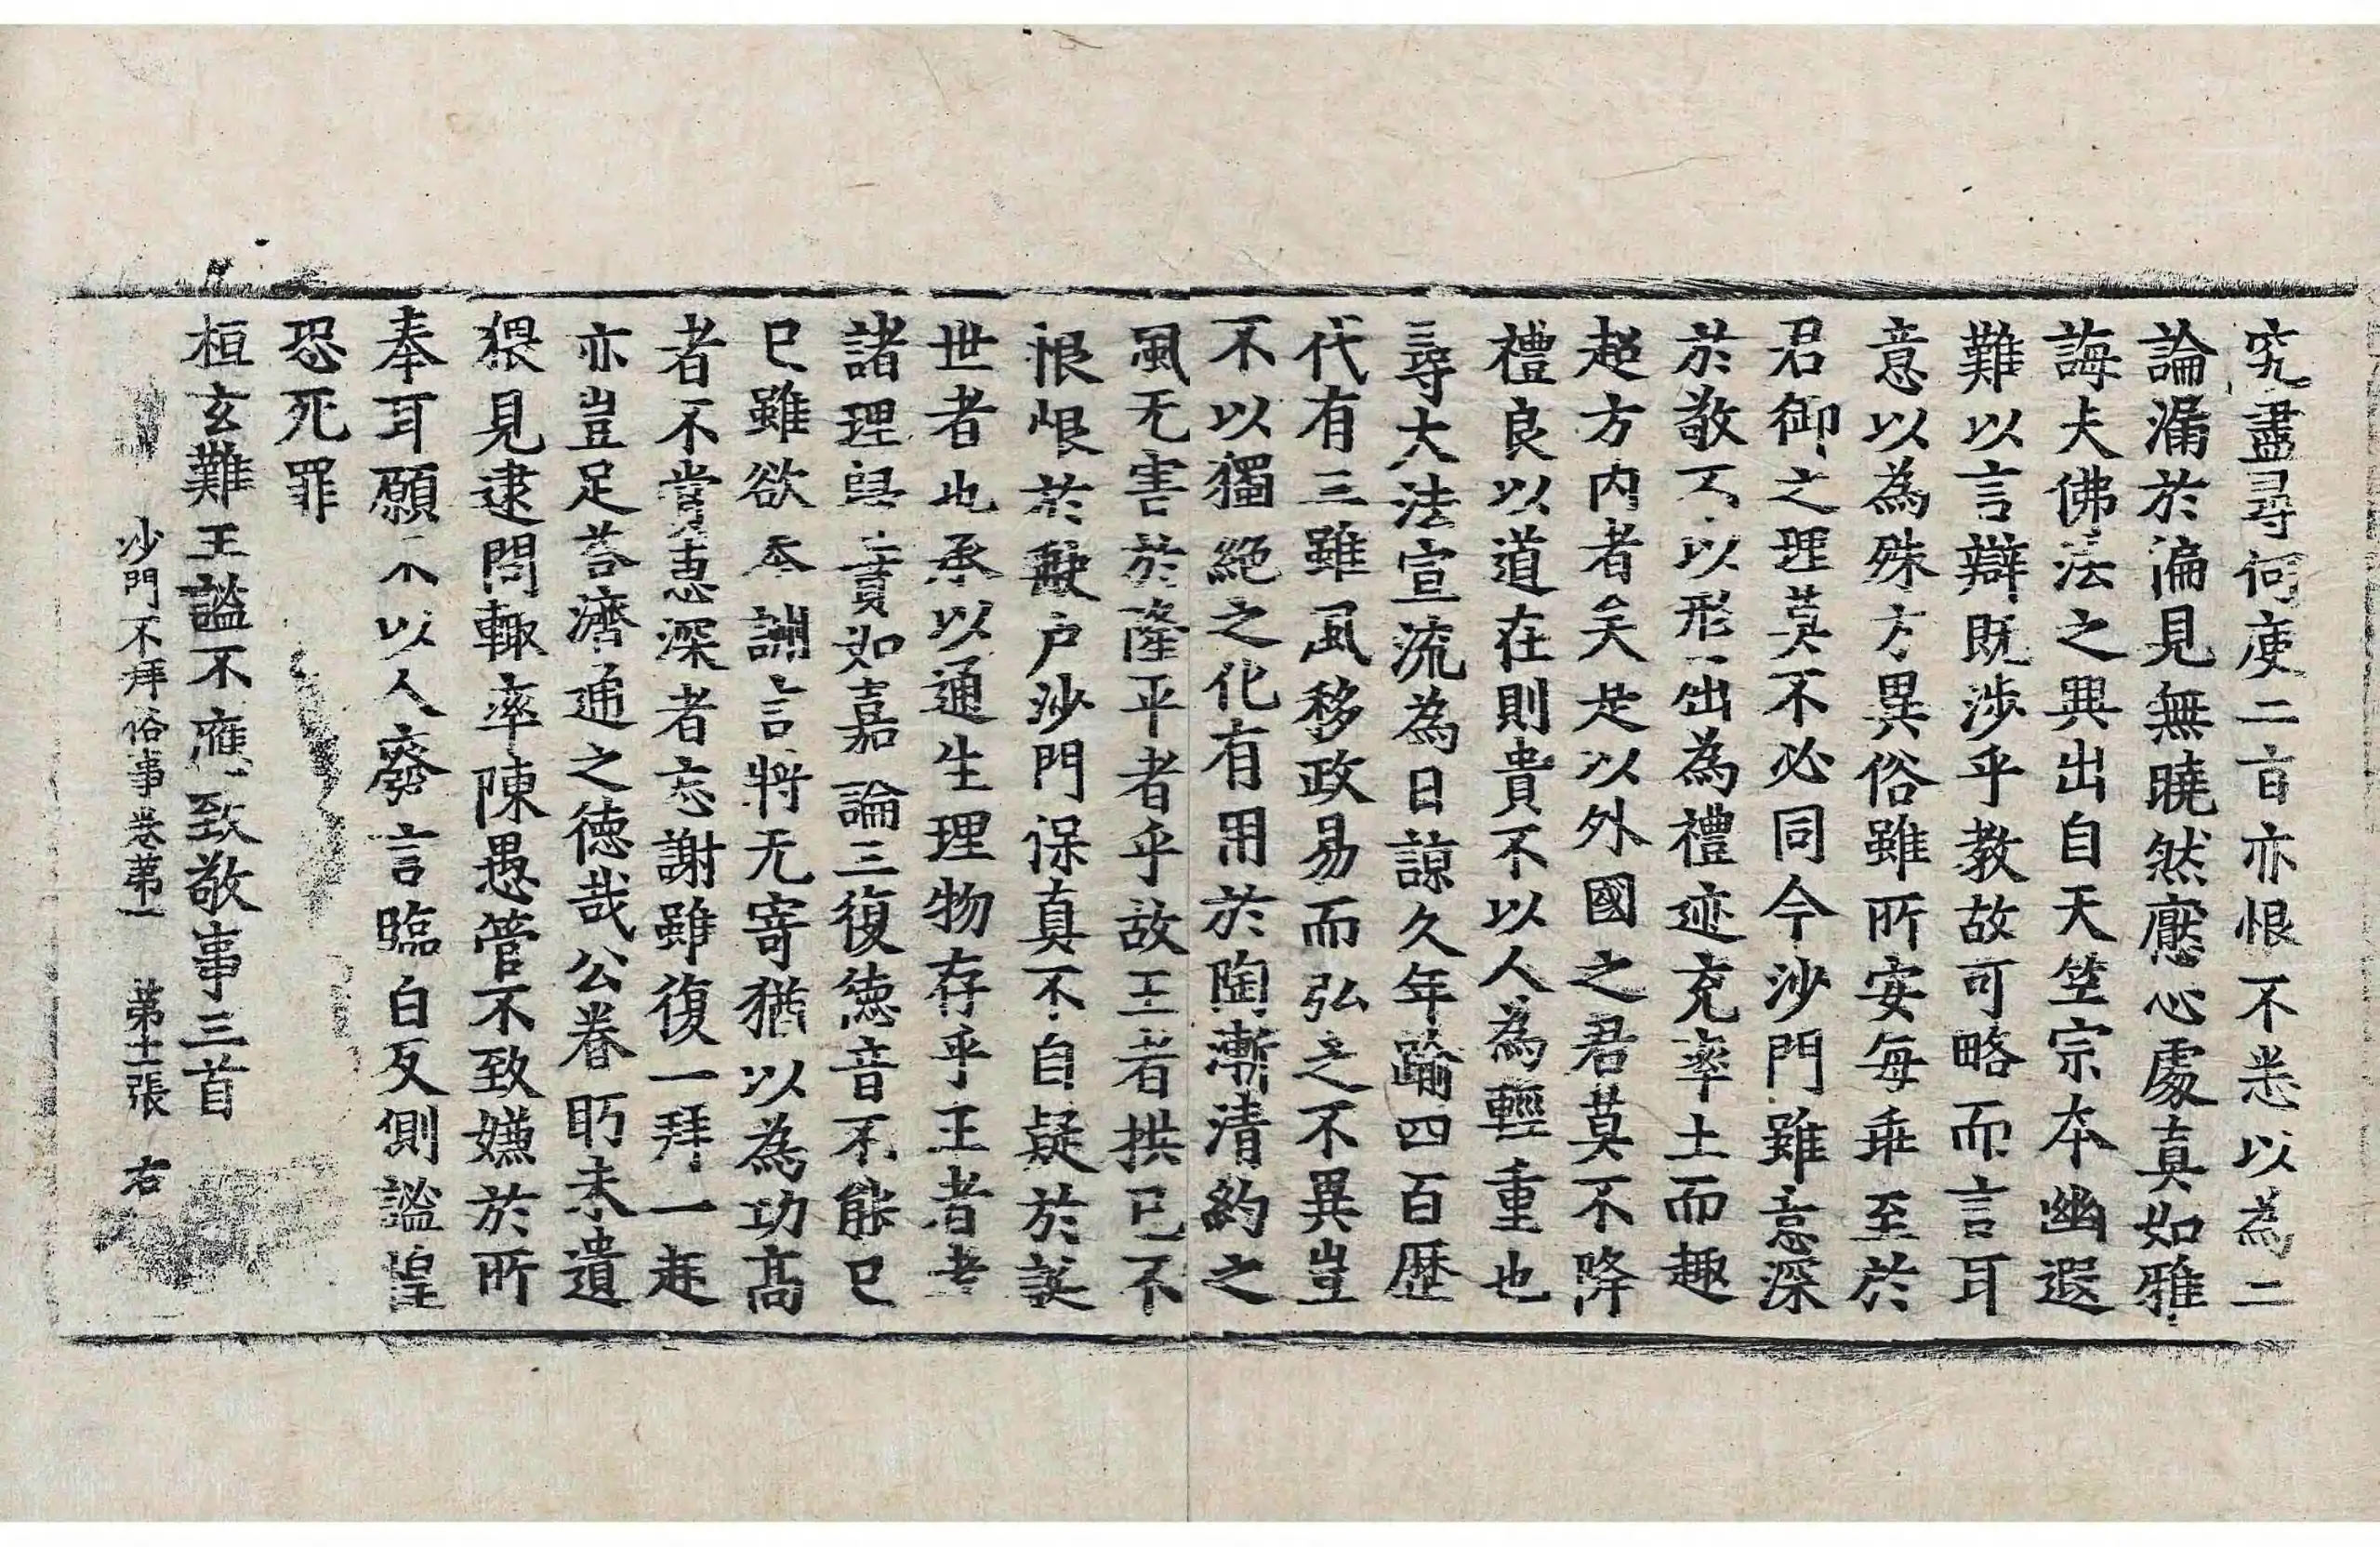 究盡尋何庾二旨亦恨不悉以為二
論漏於偏見無曉然懕心處真如雅
誨夫佛法之興出自天笁宗本幽遐
難以言辯既涉乎教故可略而言耳
意以為殊方異俗雖所安每乖至於
君御之理莫不必同今沙門雖意深
於敬不以形屈為禮迹充率土而趣
超方內者矣是以外國之君莫不降
禮良以道在則貴不以人為輕重也
尋大法宣流為日諒久年踰四百歷
代有三雖風移政易而弘之不異豈
不以獨絕之化有用於陶漸清約之
風无害於隆平者乎故王者拱己不
恨恨於蔽戶沙門保真不自疑於誕
世者也承以通生理物存乎王者考
諸理歸實如嘉論三復德音不能已
已雖欲奉詶言將无寄猶以為功高
者不賞惠深者忘謝雖復一拜一起
亦豈足荅濟通之德哉公眷眄未遺
猥見逮問輙率陳愚管不致嫌於所
奉耳願不以人廢言臨白反側謐惶
恐死罪
桓玄難王謐不應致敬事三首
沙門不拜俗事卷苐一 苐十二張 右